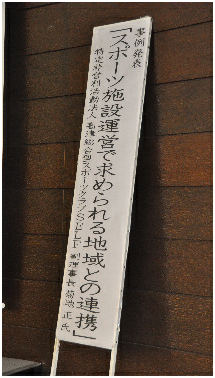 事例発表
「スポーツ施設運営で求められる地域との連携」
特定非営利活動法人 総合型スポーツクラブSELF 副理事長 菊地 正 氏